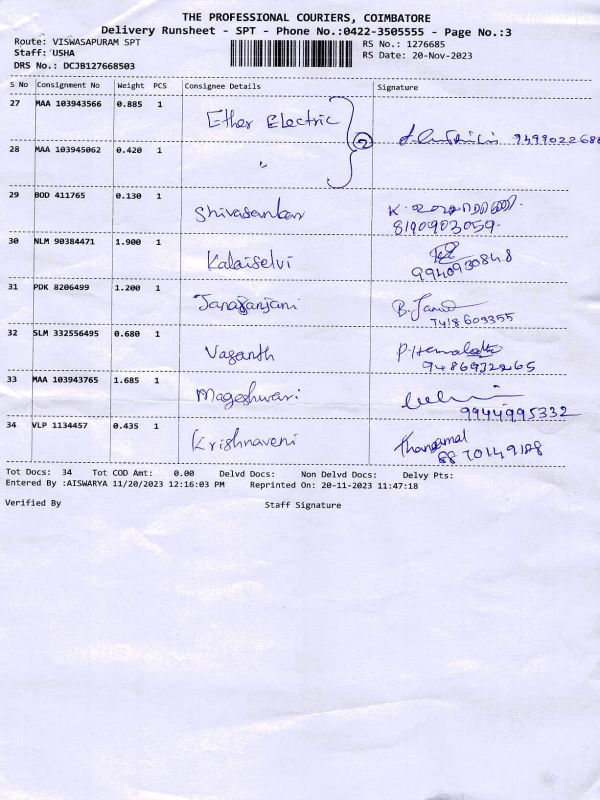 THE PROFESSIONAL COURIERS, COIMBATORE
Delivery Runsheet - SPT - Phone No.:0422-3505555 - Page No.:3
Route: VISWASAPURAM SPT
RS No.: 1276685
Staff: USHA
RS Date: 20-Nov-2023
DRS No.: DCJB127668503
S No Consignment No Weight PCS Consignee Details Signature
27 MAA 103943566 0.885 1 Ether Electric
2 9499022686
28 MAA 103945062 0.420 1 "
29 BOD 411765 0.130 1 Shivasankar K.
8190903059.
30 NLM 90384471 1.900 1 Kalaiselvi
9940930848
31 PDK 8206499 1.200 1 Janaranjani B.
7418609355
32 SLM 332556495 0.680 1 Vasanth P. Hemalatha
33 MAA 103943765 1.685 1 Mageshwari
9944995332
34 VLP 1134457 0.435 1 Krishnaveni Thangamal
8870149188
Tot Docs: 34 Tot COD Amt: 0.00 Delvd Docs: Non Delvd Docs: Delvy Pts:
Entered By :AISWARYA 11/20/2023 12:16:03 PM Reprinted On: 20-11-2023 11:47:18
Verified By Staff Signature